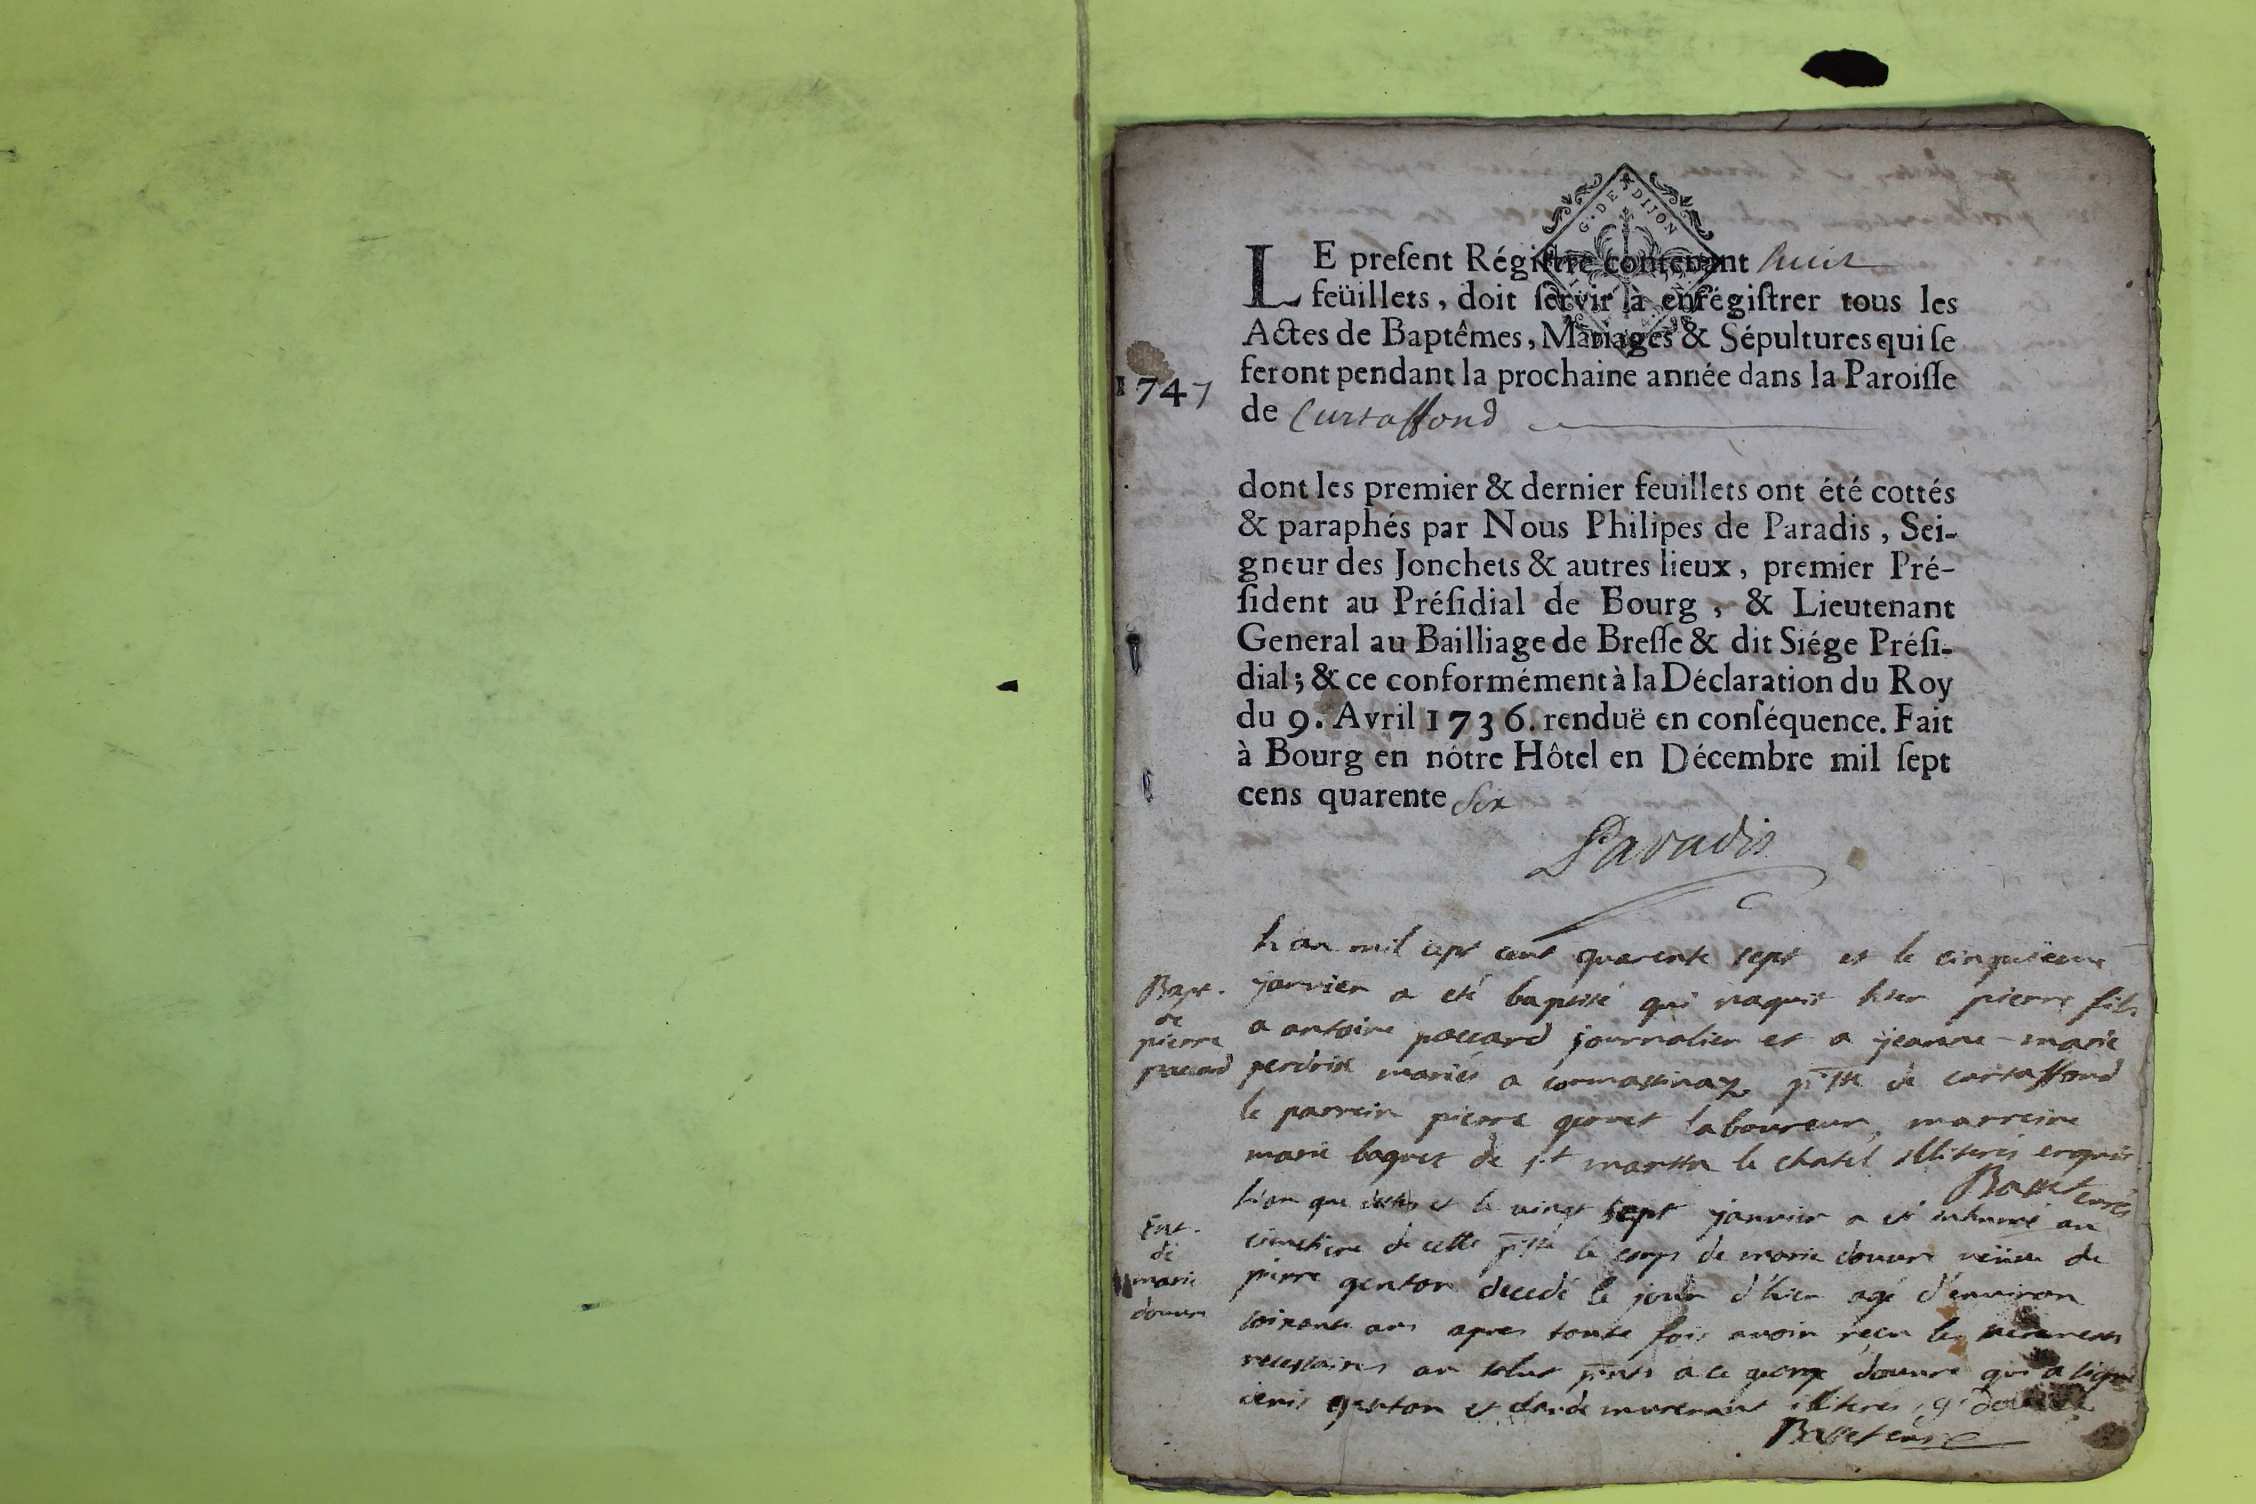 G. DE DIJON
LE preſent Régiſtre contenant huit
feüillets, doit ſervir à enrégiſtrer tous les
Actes de Baptêmes, Mariages & Sépultures qui ſe
feront pendant la prochaine année dans la Paroiſſe
1747
de Curtaffond
dont les premier & dernier feuillets ont été cottés
& paraphés par Nous Philipes de Paradis, Sei-
gneur des Jonchets & autres lieux, premier Pré-
ſident au Préſidial de Bourg, & Lieutenant
General au Bailliage de Breſſe & dit Siége Préſi-
dial; & ce conformément à la Déclaration du Roy
du 9. Avril 1736. renduë en conſéquence. Fait
à Bourg en nôtre Hôtel en Décembre mil ſept
cens quarente Six
Paradis
Bapt.
de
pierre
paccard
l'an mil sept cent quarente sept et le cinquieme
janvier a eté baptisé qui naquit hier pierre fils
a antoine paccard journalier et a jeanne-marie
perdrix mariés a de curtaffond
le parrein pierre laboureur, marreine
marie de st martin le chatel illiterés enquis
Basset curé
Ent.
de
marie
douvre
l'an que dessus et le vingt sept janvier a eté inhumé au
cimetiere de cette le corps de marie douvre veüve de
pierre genton decedé le jour d'hier agé d'environ
soixante ans apres toute fois avoir reçu les sacremens
necessaires au salut a ce george douvre qui a signé
denis genton et claude illiterés g. douvre
Basset curé